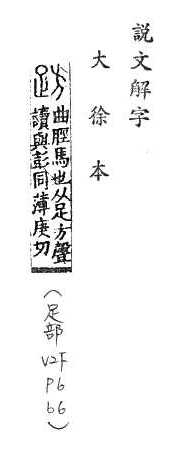 説文解字
大徐本
趽
曲脛馬也从足方聲
讀與彭同薄庚切
(足部 V2下 P6 b6)